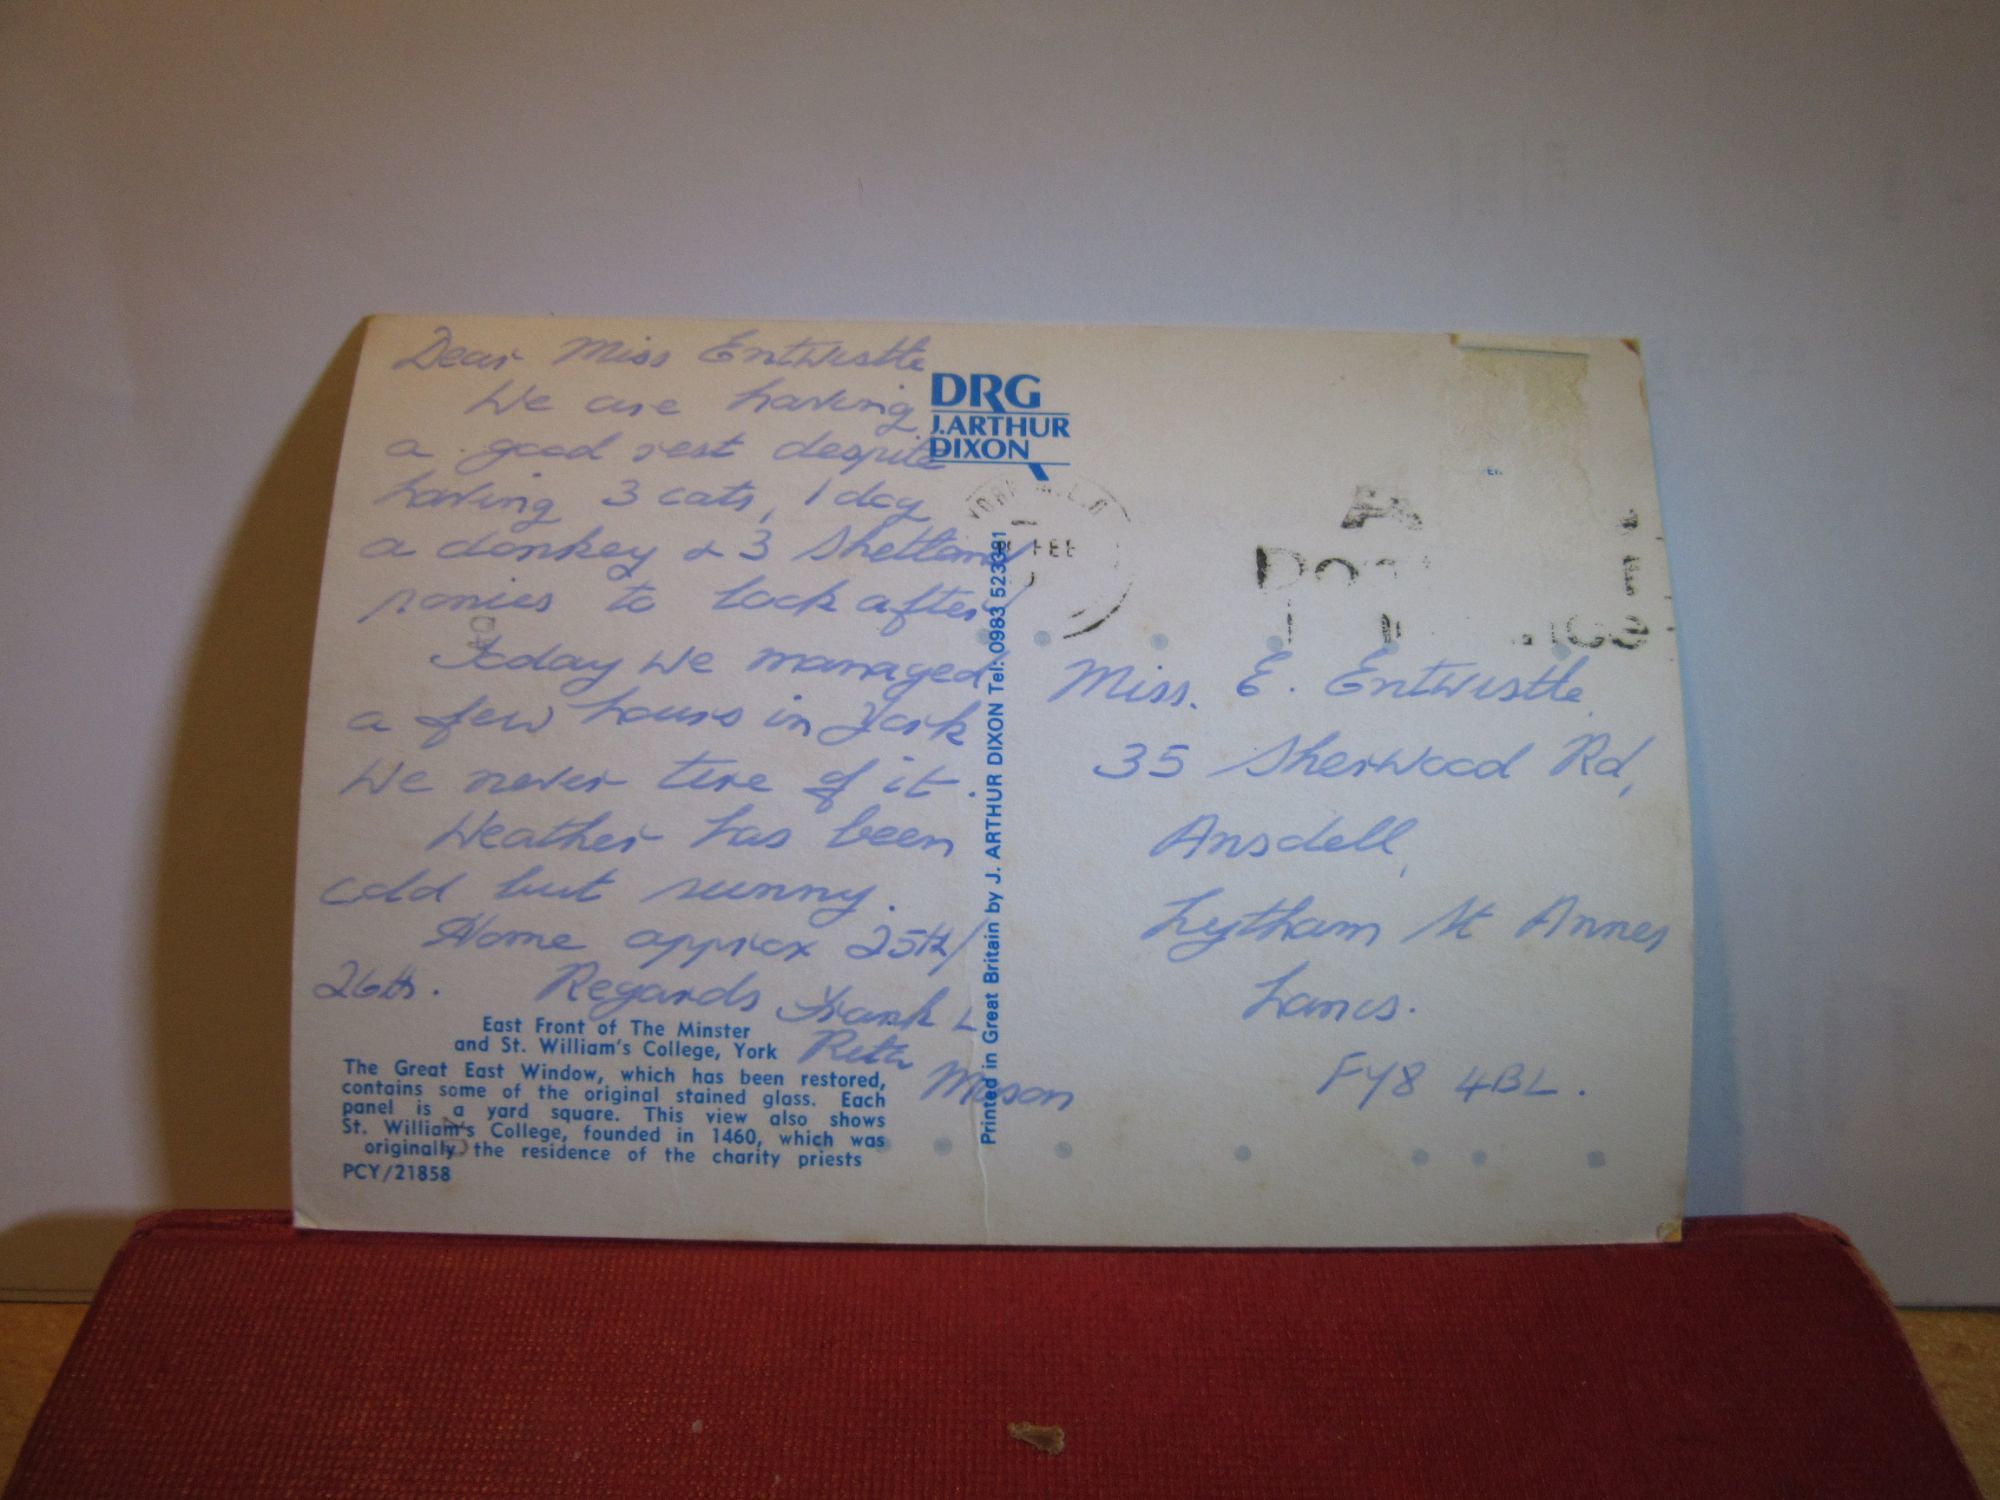 Dear Miss Entwistle
We are having
a good rest despite
having 3 cats, 1 dog
a donkey & 3 Shetland
ponies to look after
Today we managed
a few hours in York
We never tire of it.
Weather has been
cold but sunny.
Home approx 25th/
26th. Regards Frank &
Ruth
Mason
East Front of The Minster
and St. William's College, York
The Great East Window, which has been restored,
contains some of the original stained glass. Each
panel is a yard square. This view also shows
St. William's College, founded in 1460, which was
originally the residence of the charity priests
PCY/21858
DRG
J.ARTHUR
DIXON
Printed in Great Britain by J. ARTHUR DIXON Tel: 0983 523381
YORK
FEB
Miss. E. Entwistle
35 Sherwood Rd,
Ansdell,
Lytham St Annes
Lancs.
FY8 4BL.